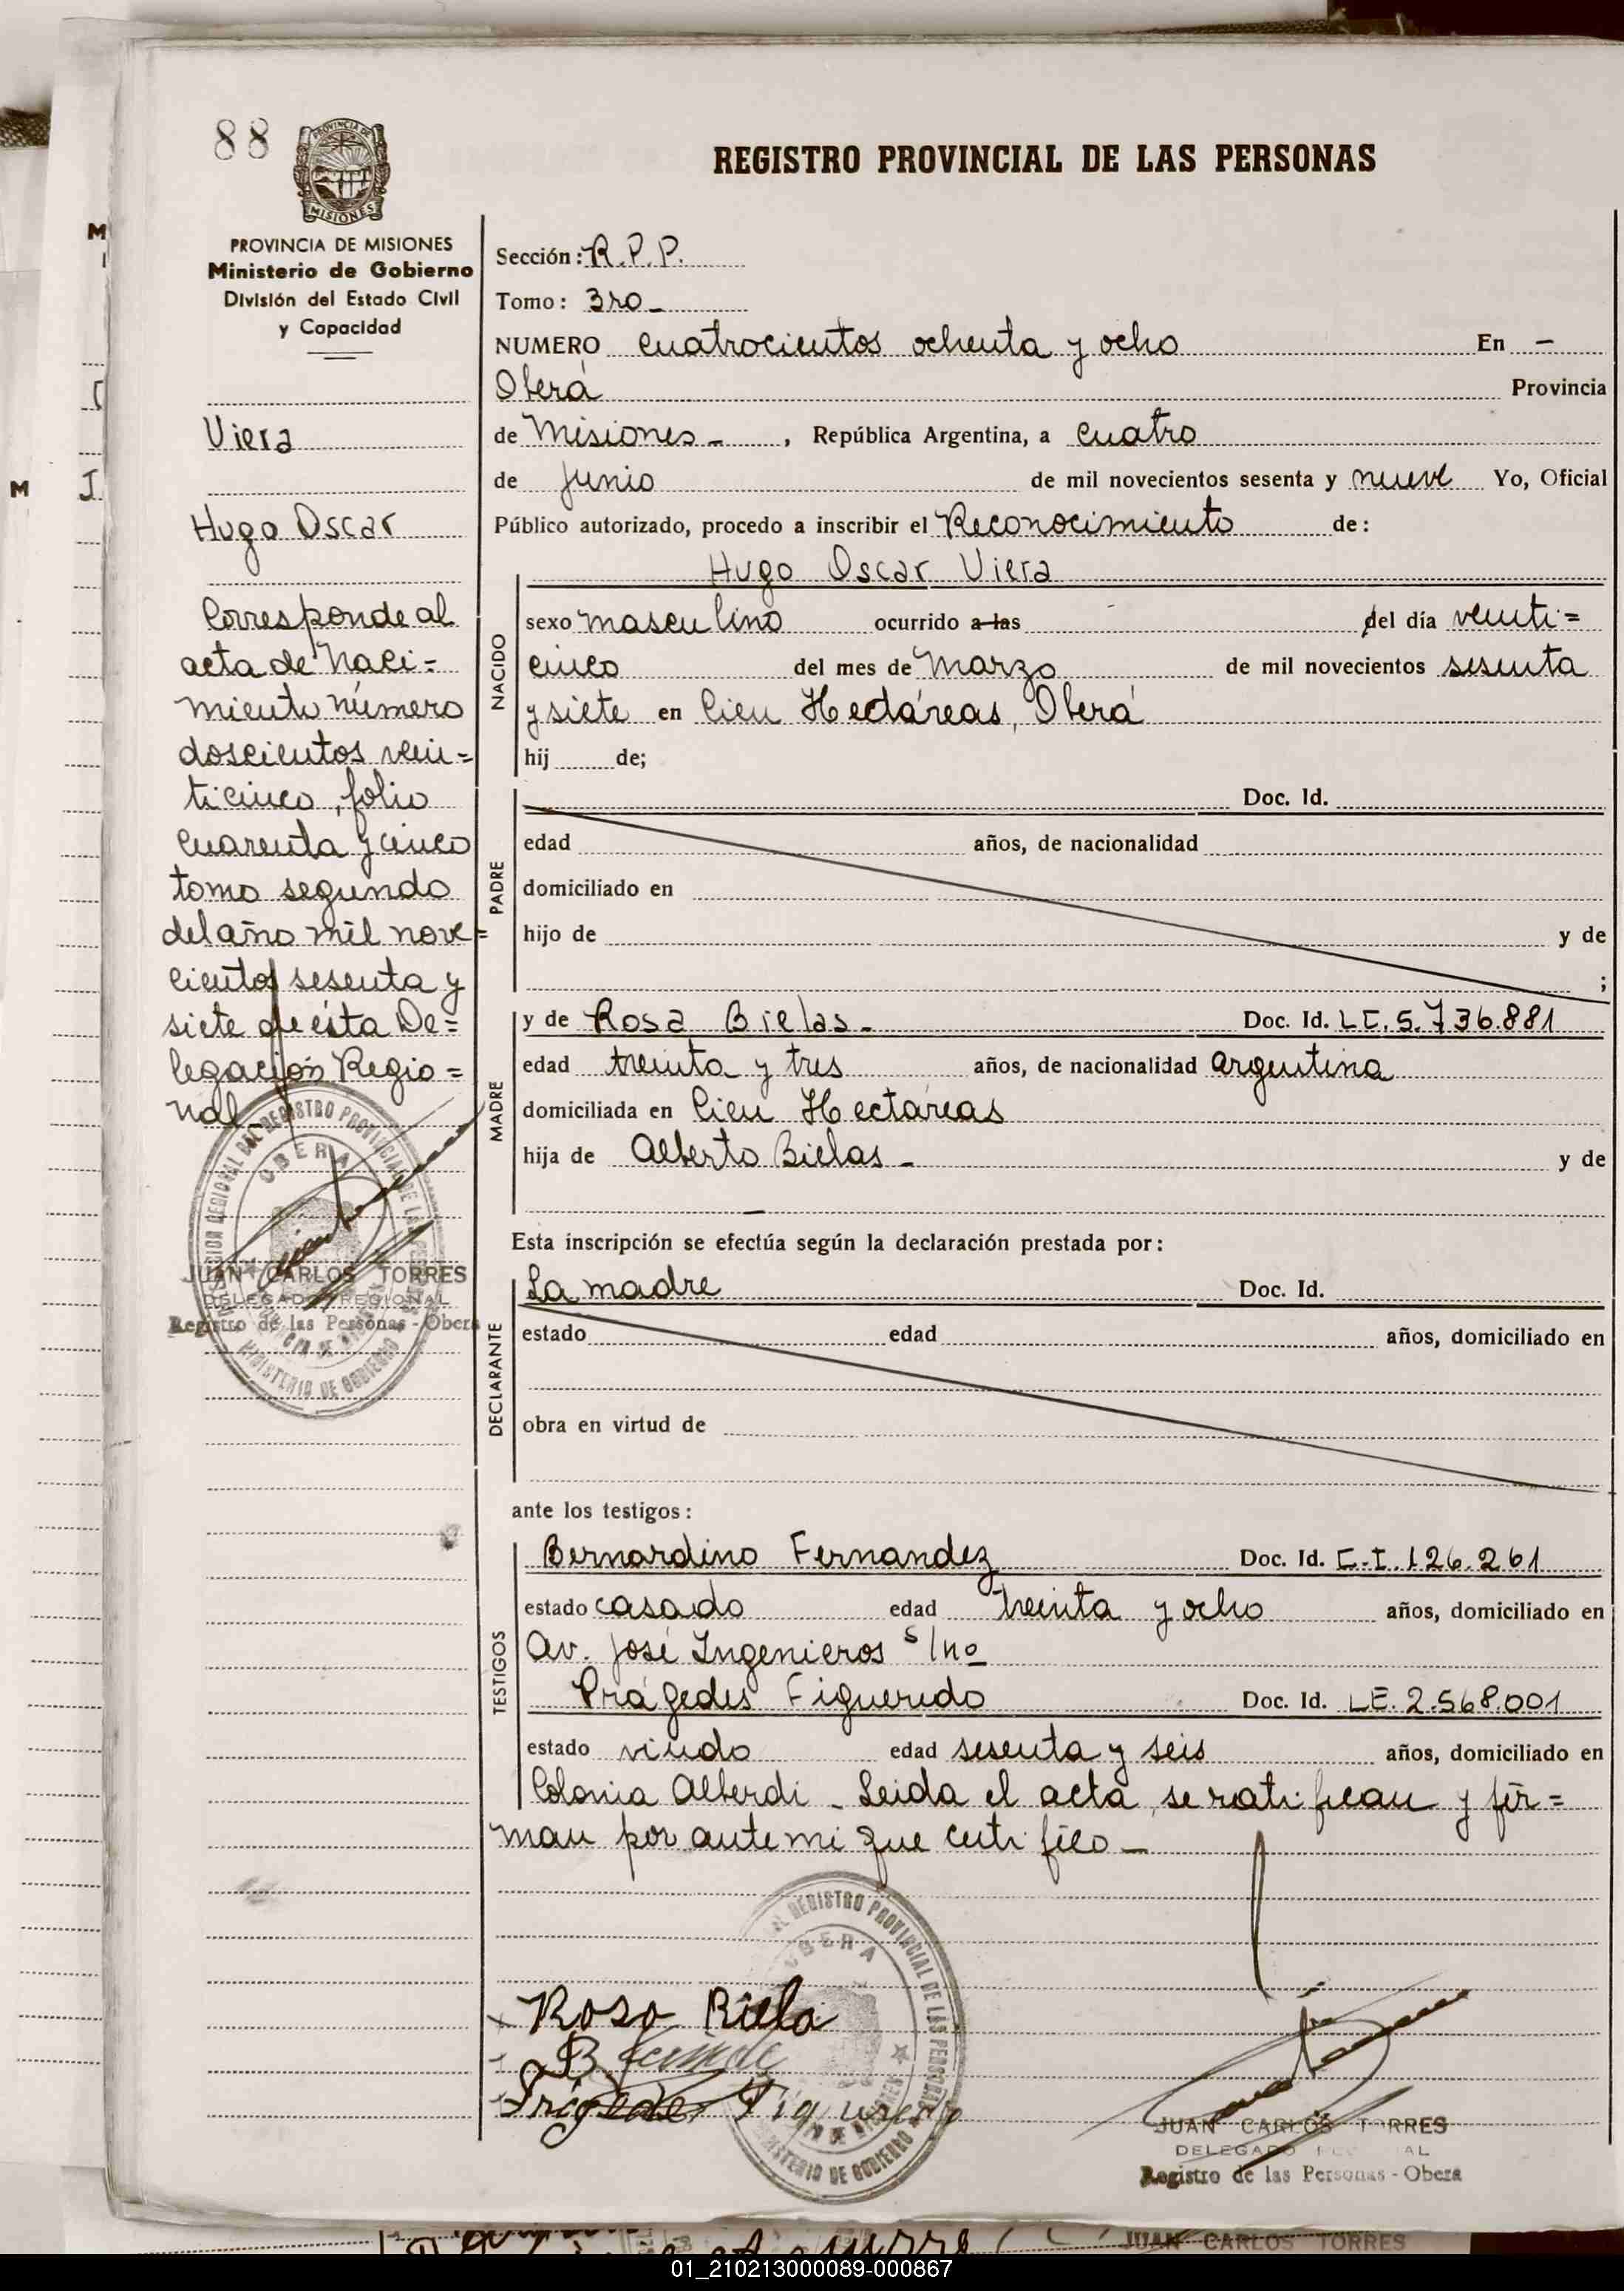 88
PROVINCIA DE MISIONES
PROVINCIA DE MISIONES
Ministerio de Gobierno
División del Estado Civil
y Capacidad
Viera
Hugo Oscar
Corresponde al
acta de Naci=
miento número
doscientos vein=
ticinco, folio
cuarenta y cinco
tomo segundo
del año mil nove=
cientos sesenta y
siete de ésta De=
legación Regio=
nal_
OBERA
JUAN CARLOS TORRES
DELEGADO REGIONAL
Registro de las Personas - Oberá
MINISTERIO DE GOBIERNO
REGISTRO PROVINCIAL DE LAS PERSONAS
Sección: R.P.P.
Tomo: 3ro_
NUMERO cuatrocientos ochenta y ocho En -
Oberá Provincia
de Misiones_, República Argentina, a cuatro
de Junio de mil novecientos sesenta y nueve Yo, Oficial
Público autorizado, procedo a inscribir el Reconocimiento de:
NACIDO
Hugo Oscar Viera
sexo masculino ocurrido a las del día veinti=
cinco del mes de Marzo de mil novecientos sesenta
y siete en Cien Hectáreas, Oberá
hij de;
PADRE
Doc. Id.
edad años, de nacionalidad
domiciliado en
hijo de y de
;
MADRE
y de Rosa Bielas_ Doc. Id. LC. 5.736.881
edad treinta y tres años, de nacionalidad argentina
domiciliada en Cien Hectáreas
hija de Alberto Bielas_ y de
—
Esta inscripción se efectúa según la declaración prestada por:
DECLARANTE
La madre Doc. Id.
estado edad años, domiciliado en
obra en virtud de
ante los testigos:
TESTIGOS
Bernardino Fernandez Doc. Id. C.I. 126.261
estado casado edad treinta y ocho años, domiciliado en
Av. José Ingenieros s/nº
Prágedes Figueredo Doc. Id. LE. 2.568.001
estado viudo edad sesenta y seis años, domiciliado en
Colonia Alberdi_ Leida el acta, se ratifican y fir=
man por ante mi que certifico_
REGISTRO PROVINCIAL DE LAS PERSONAS
OBERA
MINISTERIO DE GOBIERNO
Rosa Biela
JUAN CARLOS TORRES
Registro de las Personas - Oberá
JUAN CARLOS TORRES
01_210213000089-000867